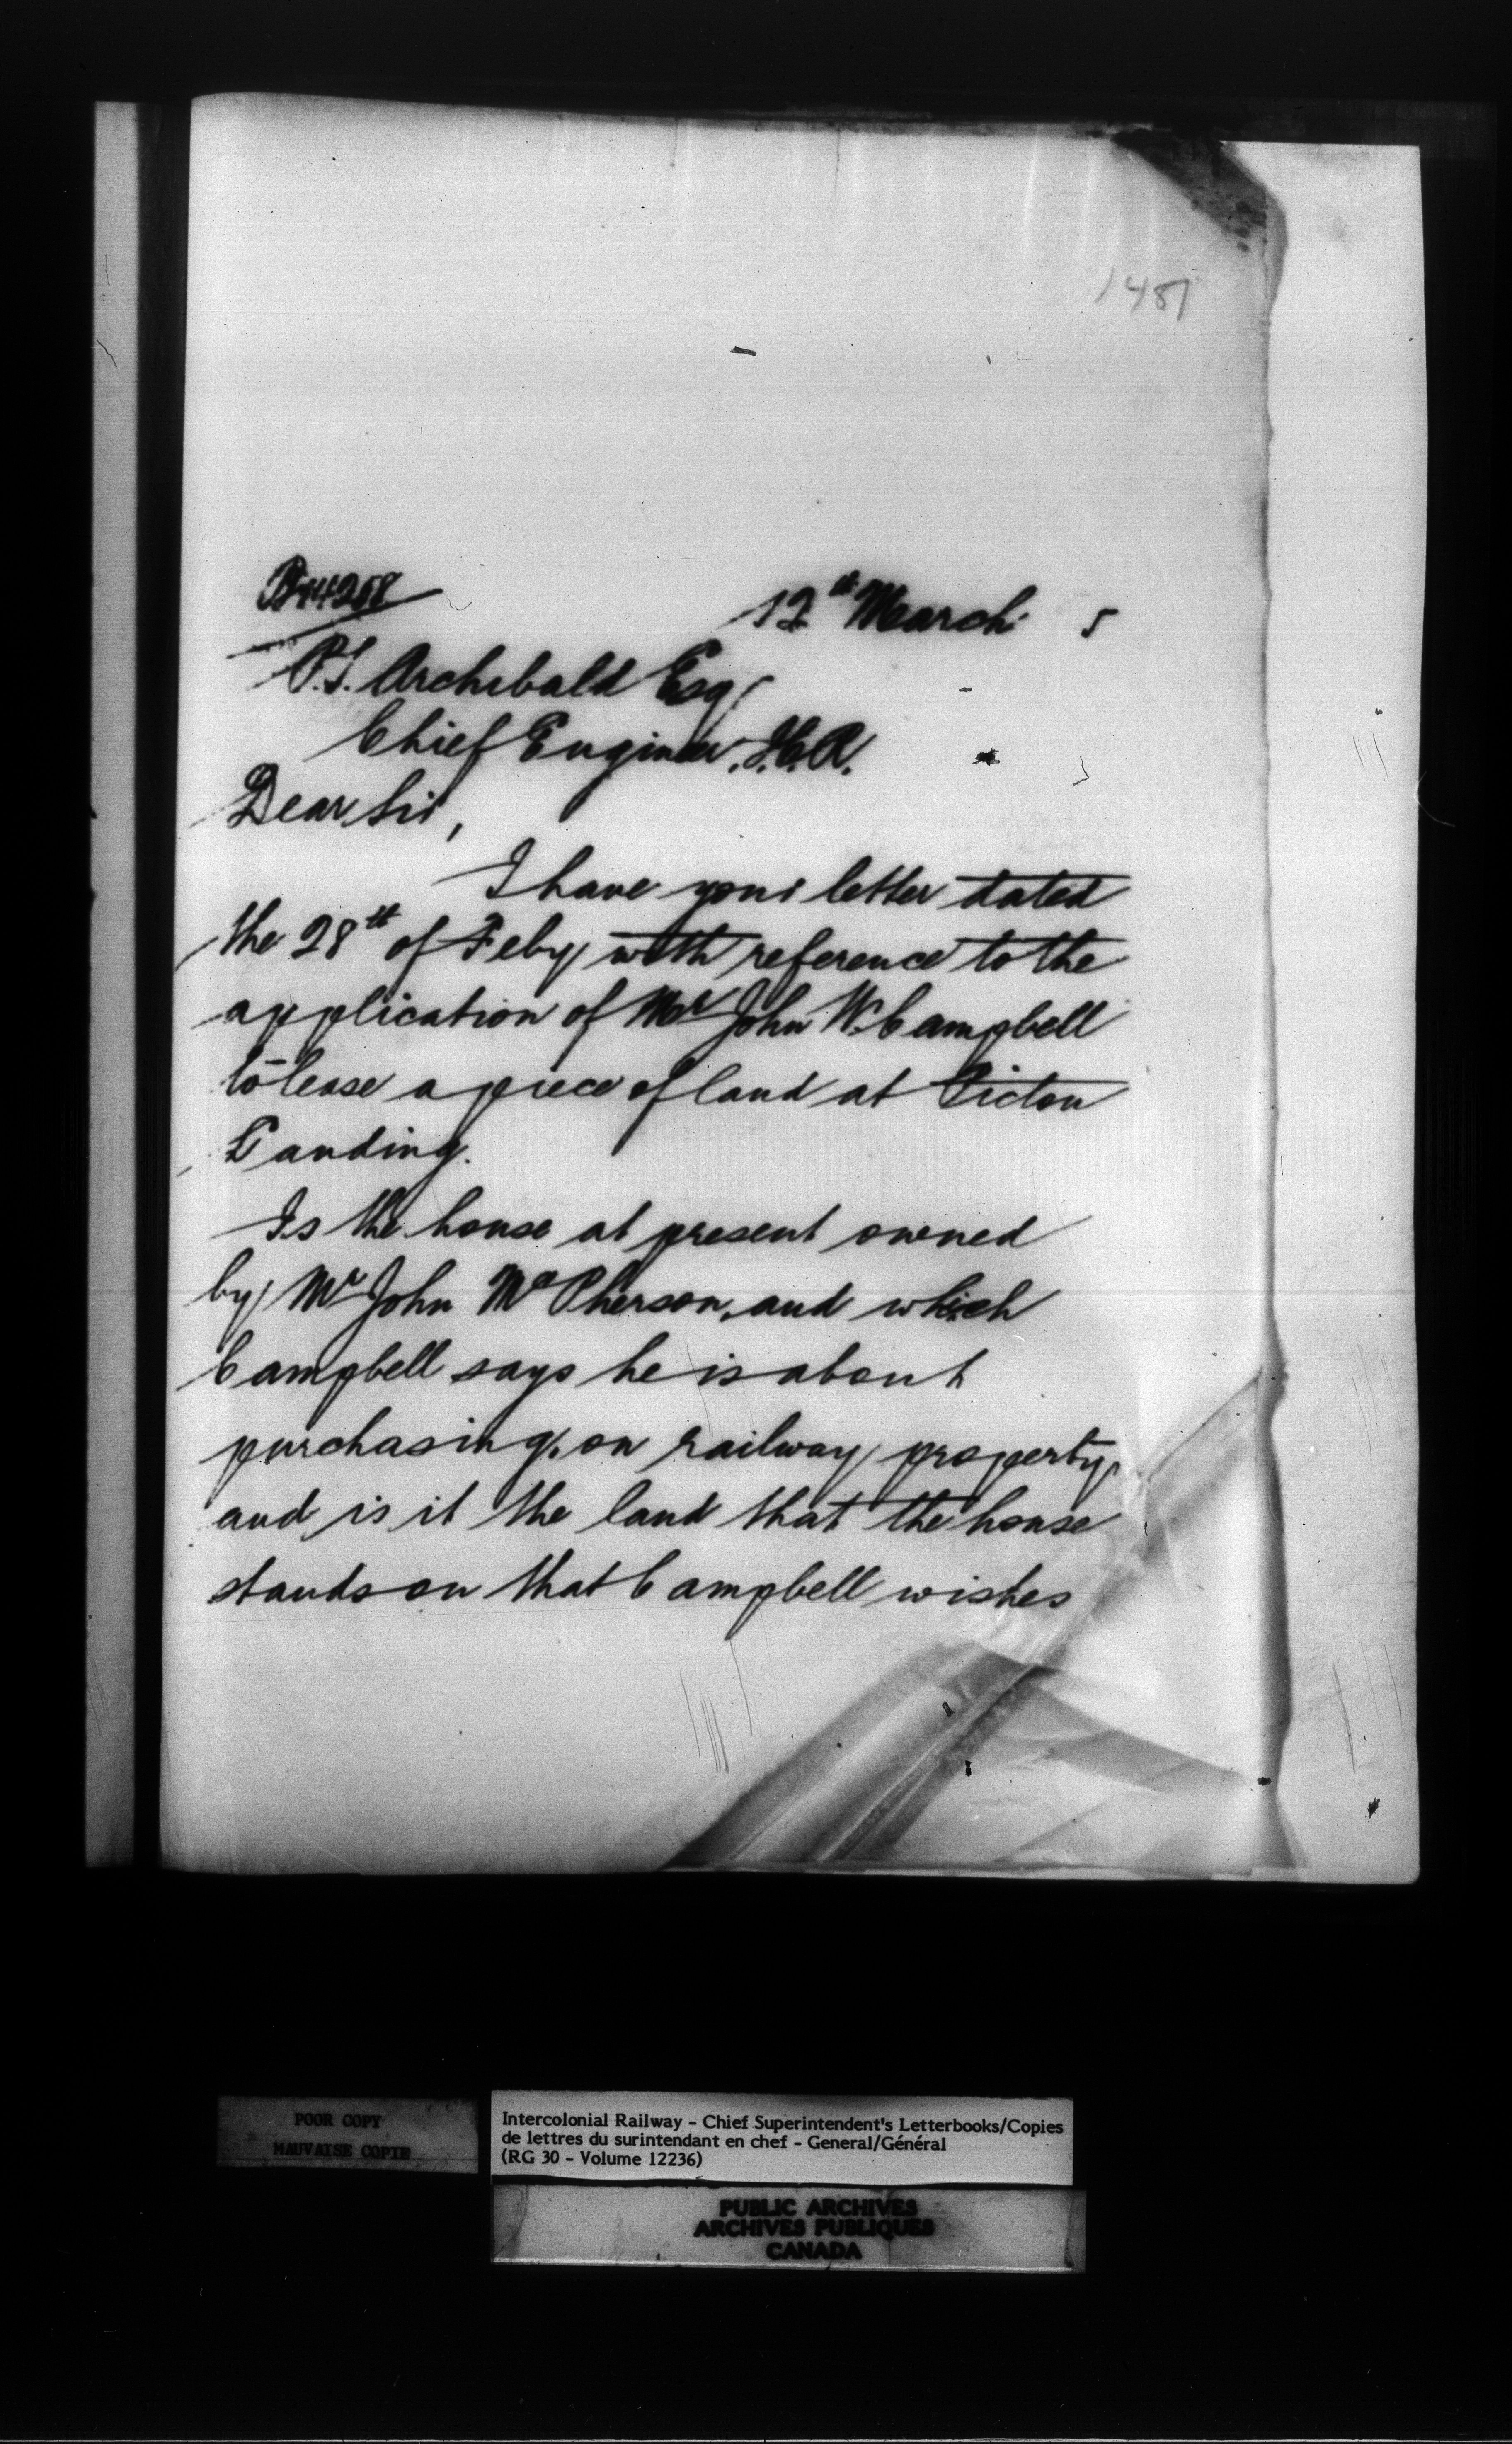 1481
12th March 5
P.S. Archibald Esq
Chief Engineer, I.C.R.
Dear Sir,
I have your letter dated
the 28th of Feby with reference to the
application of Mr John W. Campbell
to lease a piece of land at Pictou
Landing.
Is the house at present owned
by Mr John McPherson, and which
Campbell says he is about
purchasing, on railway property,
and is it the land that the house
stands on that Campbell wishes
POOR COPY
MAUVAISE COPIE
Intercolonial Railway - Chief Superintendent's Letterbooks/Copies
de lettres du surintendant en chef - General/Général
(RG 30 - Volume 12236)
PUBLIC ARCHIVES
ARCHIVES PUBLIQUES
CANADA